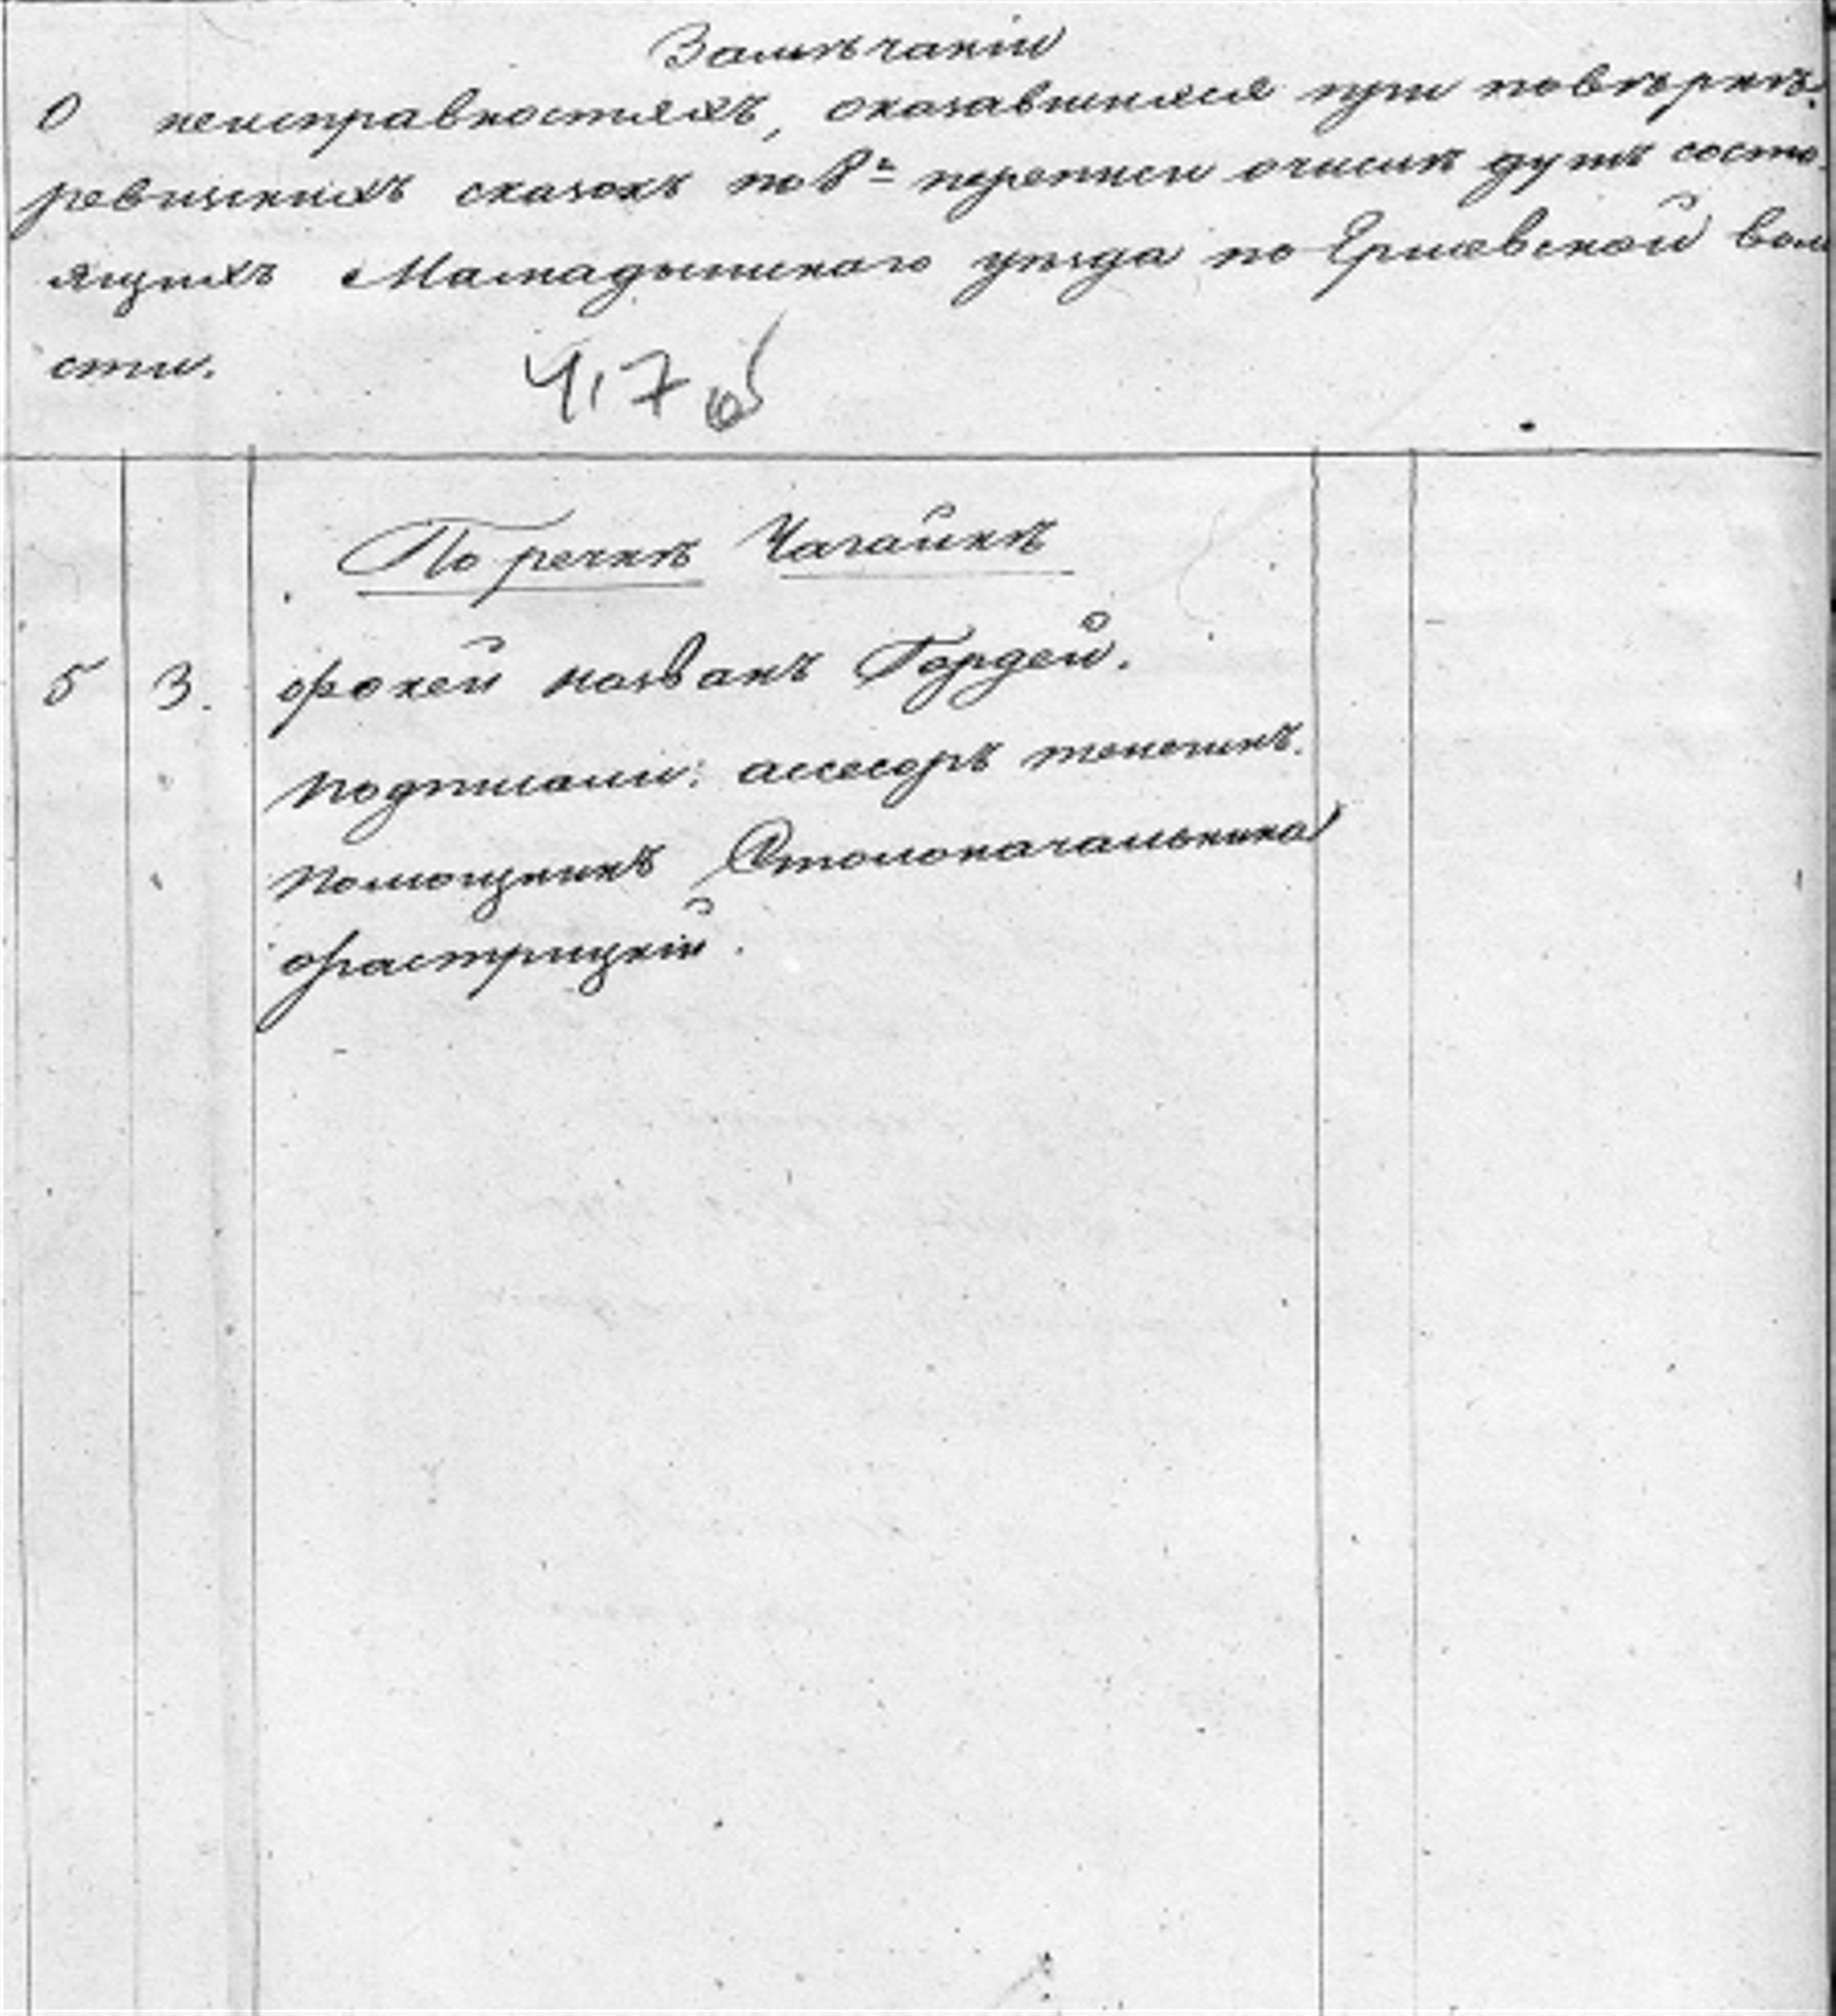 Замѣчаніи
О неисправностяхъ, оказавшихся при повѣркѣ
ревизскихъ сказокъ по 8ѣ переписи о числѣ душъ состо
ящихъ Мамадышскаго уѣзда по волo
сти.
417 об
По речкѣ Чагайкѣ
5 3. Фокей названъ Гордей.
подписали: ассесоръ
помощникъ Столоначальника